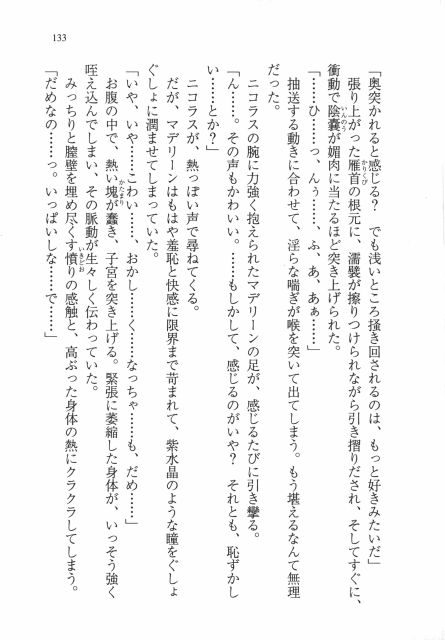 133
「奥突かれると感じる？　でも浅いところ掻き回されるのは、もっと好きみたいだ」
張り上がった雁首の根元に、濡襞が擦りつけられながら引き摺りだされ、そしてすぐに、
衝動で陰嚢が媚肉に当たるほど突き上げられた。
「……ひ……っ、んぅ……、ふ、あ、あぁ……」
抽送する動きに合わせて、淫らな喘ぎが喉を突いて出てしまう。もう堪えるなんて無理
だった。
ニコラスの腕に力強く抱えられたマデリーンの足が、感じるたびに引き攣る。
「ん……。その声もかわいい。……もしかして、感じるのがいや？　それとも、恥ずかし
い……とか？」
ニコラスが、熱っぽい声で尋ねてくる。
だが、マデリーンはもはや羞恥と快感に限界まで苛まれて、紫水晶のような瞳をぐしょ
ぐしょに潤ませてしまっていた。
「いや、いや……こわい……、おかし……く……なっちゃ……も、だめ……」
お腹の中で、熱い塊が蠢き、子宮を突き上げる。緊張に萎縮した身体が、いっそう強く
咥え込んでしまい、その脈動が生々しく伝わっていた。
みっちりと膣壁を埋め尽くす憤りの感触と、高ぶった身体の熱にクラクラしてしまう。
「だめなの……っ。いっぱいしな……で……」